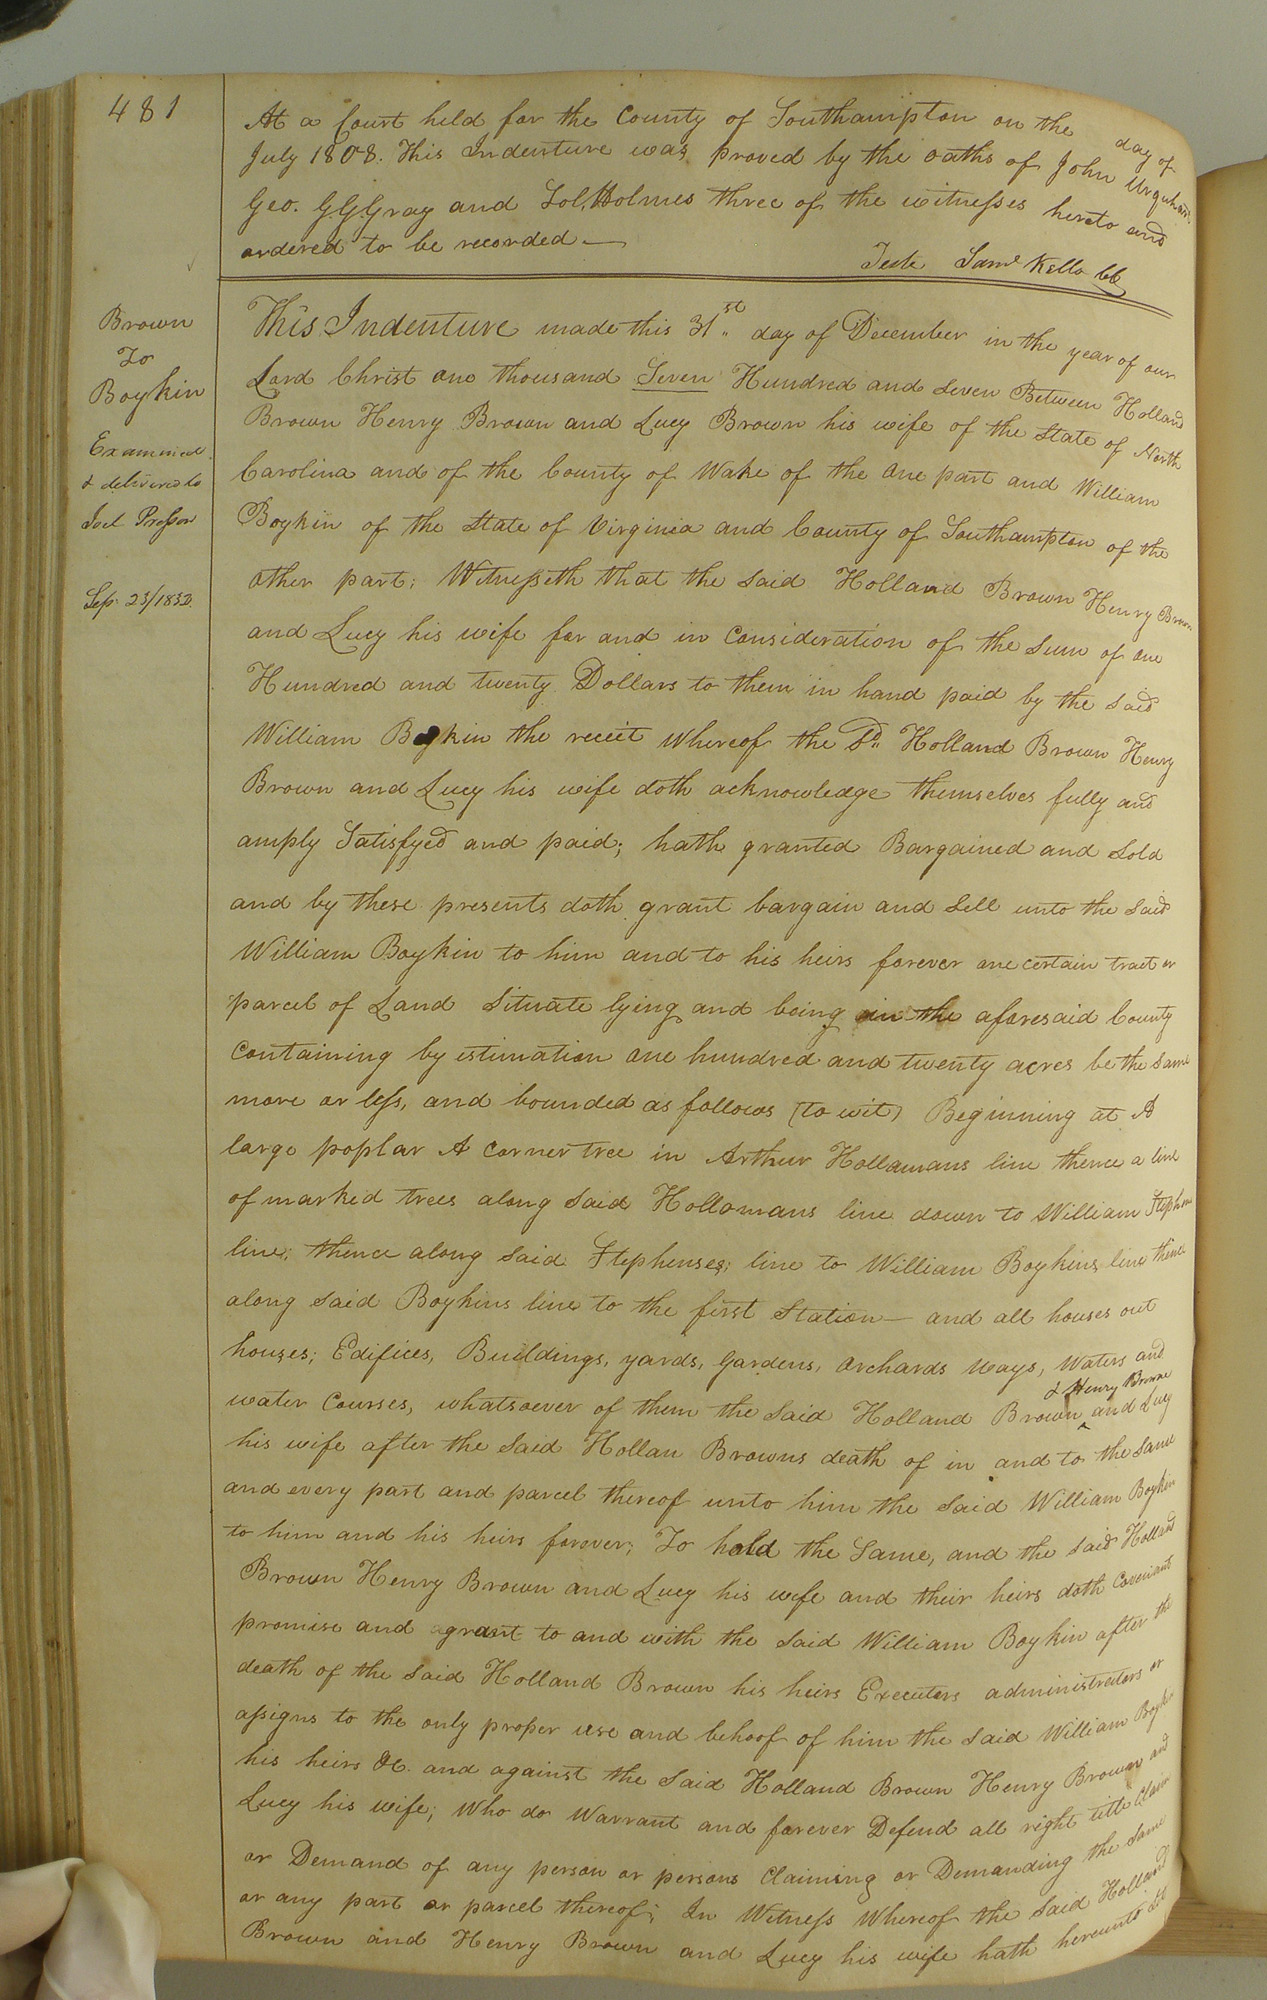 481
At a Court held for the County of Southampton on the day of
July 1808. This Indenture was proved by the oaths of John Urquhart
Geo. G G Gray and Sol, Holmes three of the witnesses hereto and
ordered to be recorded —
Teste Saml Kello CC
Brown
To
Boykin
Examined
& delivered to
Joel
Sep. 23/1833
This Indenture made this 31st day of December in the year of our
Lord Christ one thousand Seven Hundred and seven Between Holland
Brown Henry Brown and Lucy Brown his wife of the State of North
Carolina and of the County of Wake of the one part and William
Boykin of the State of Virginia and County of Southampton of the
other part; Witnesseth that the said Holland Brown Henry Brown
and Lucy his wife for and in Consideration of the sum of one
Hundred and twenty Dollars to them in hand paid by the said
William Boykin the receit whereof the Sd. Holland Brown Henry
Brown and Lucy his wife doth acknowledge themselves fully and
amply Satisfyed and paid; hath granted Bargained and Sold
and by these presents doth grant bargain and Sell unto the said
William Boykin to him and to his heirs forever one certain tract or
parcel of Land Situate lying and being in the aforesaid County
Containing by estimation one hundred and twenty acres be the same
more or less, and bounded as follows (to wit) Beginning at A
large poplar A corner tree in Arthur Hollamans line thence a line
of marked trees along said Hollomans line down to William Stephens
line; thence along said Stephenses; line to William Boykins line thence
along said Boykins line to the first Station — and all houses out
houses; Edifices, Buildings, yards, Gardens, Orchards Ways, Waters and
water Courses, whatsoever of them the said Holland Brown & Henry Brown and Lucy
his wife after the said Hollan Browns death of in and to the same
and every part and parcel thereof unto him the said William Boykin
to him and his heirs forever; To hold the Same, and the said Holland
Brown Henry Brown and Lucy his wife and their heirs doth Covenant
promise and agrant to and with the said William Boykin after the
death of the said Holland Brown his heirs Executers administrators or
assigns to the only proper use and behoof of him the said William Boykin
his heirs &c. and against the said Holland Brown Henry Brown and
Lucy his wife; Who do Warrant and forever Defend all right title Claim
or Demand of any person or persons Claiming or Demanding the same
or any part or parcel thereof; In Witness Whereof the said Holland
Brown and Henry Brown and Lucy his wife hath hereunto set